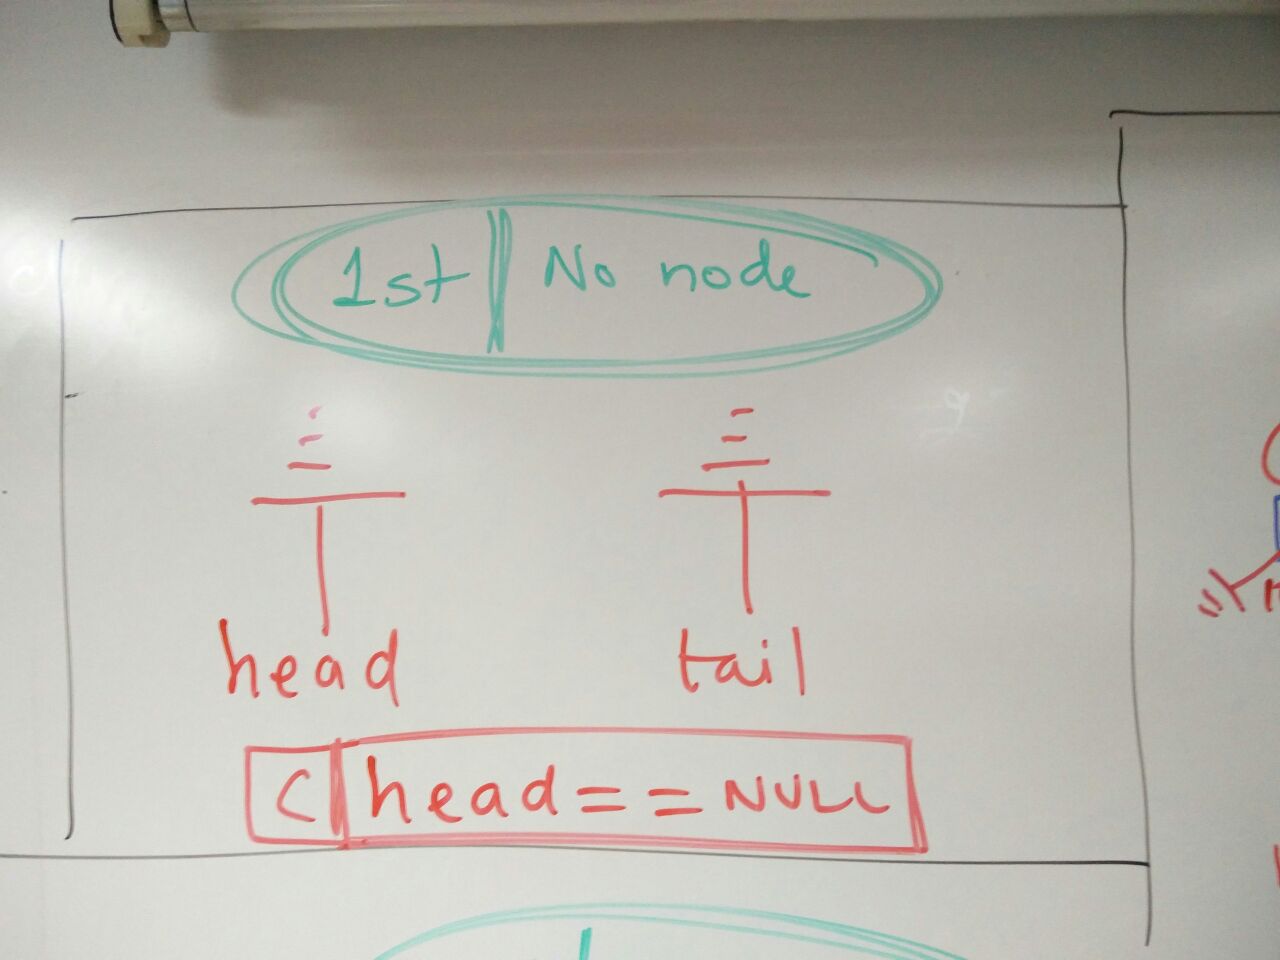 1st | No node
head tail
C | head == NULL